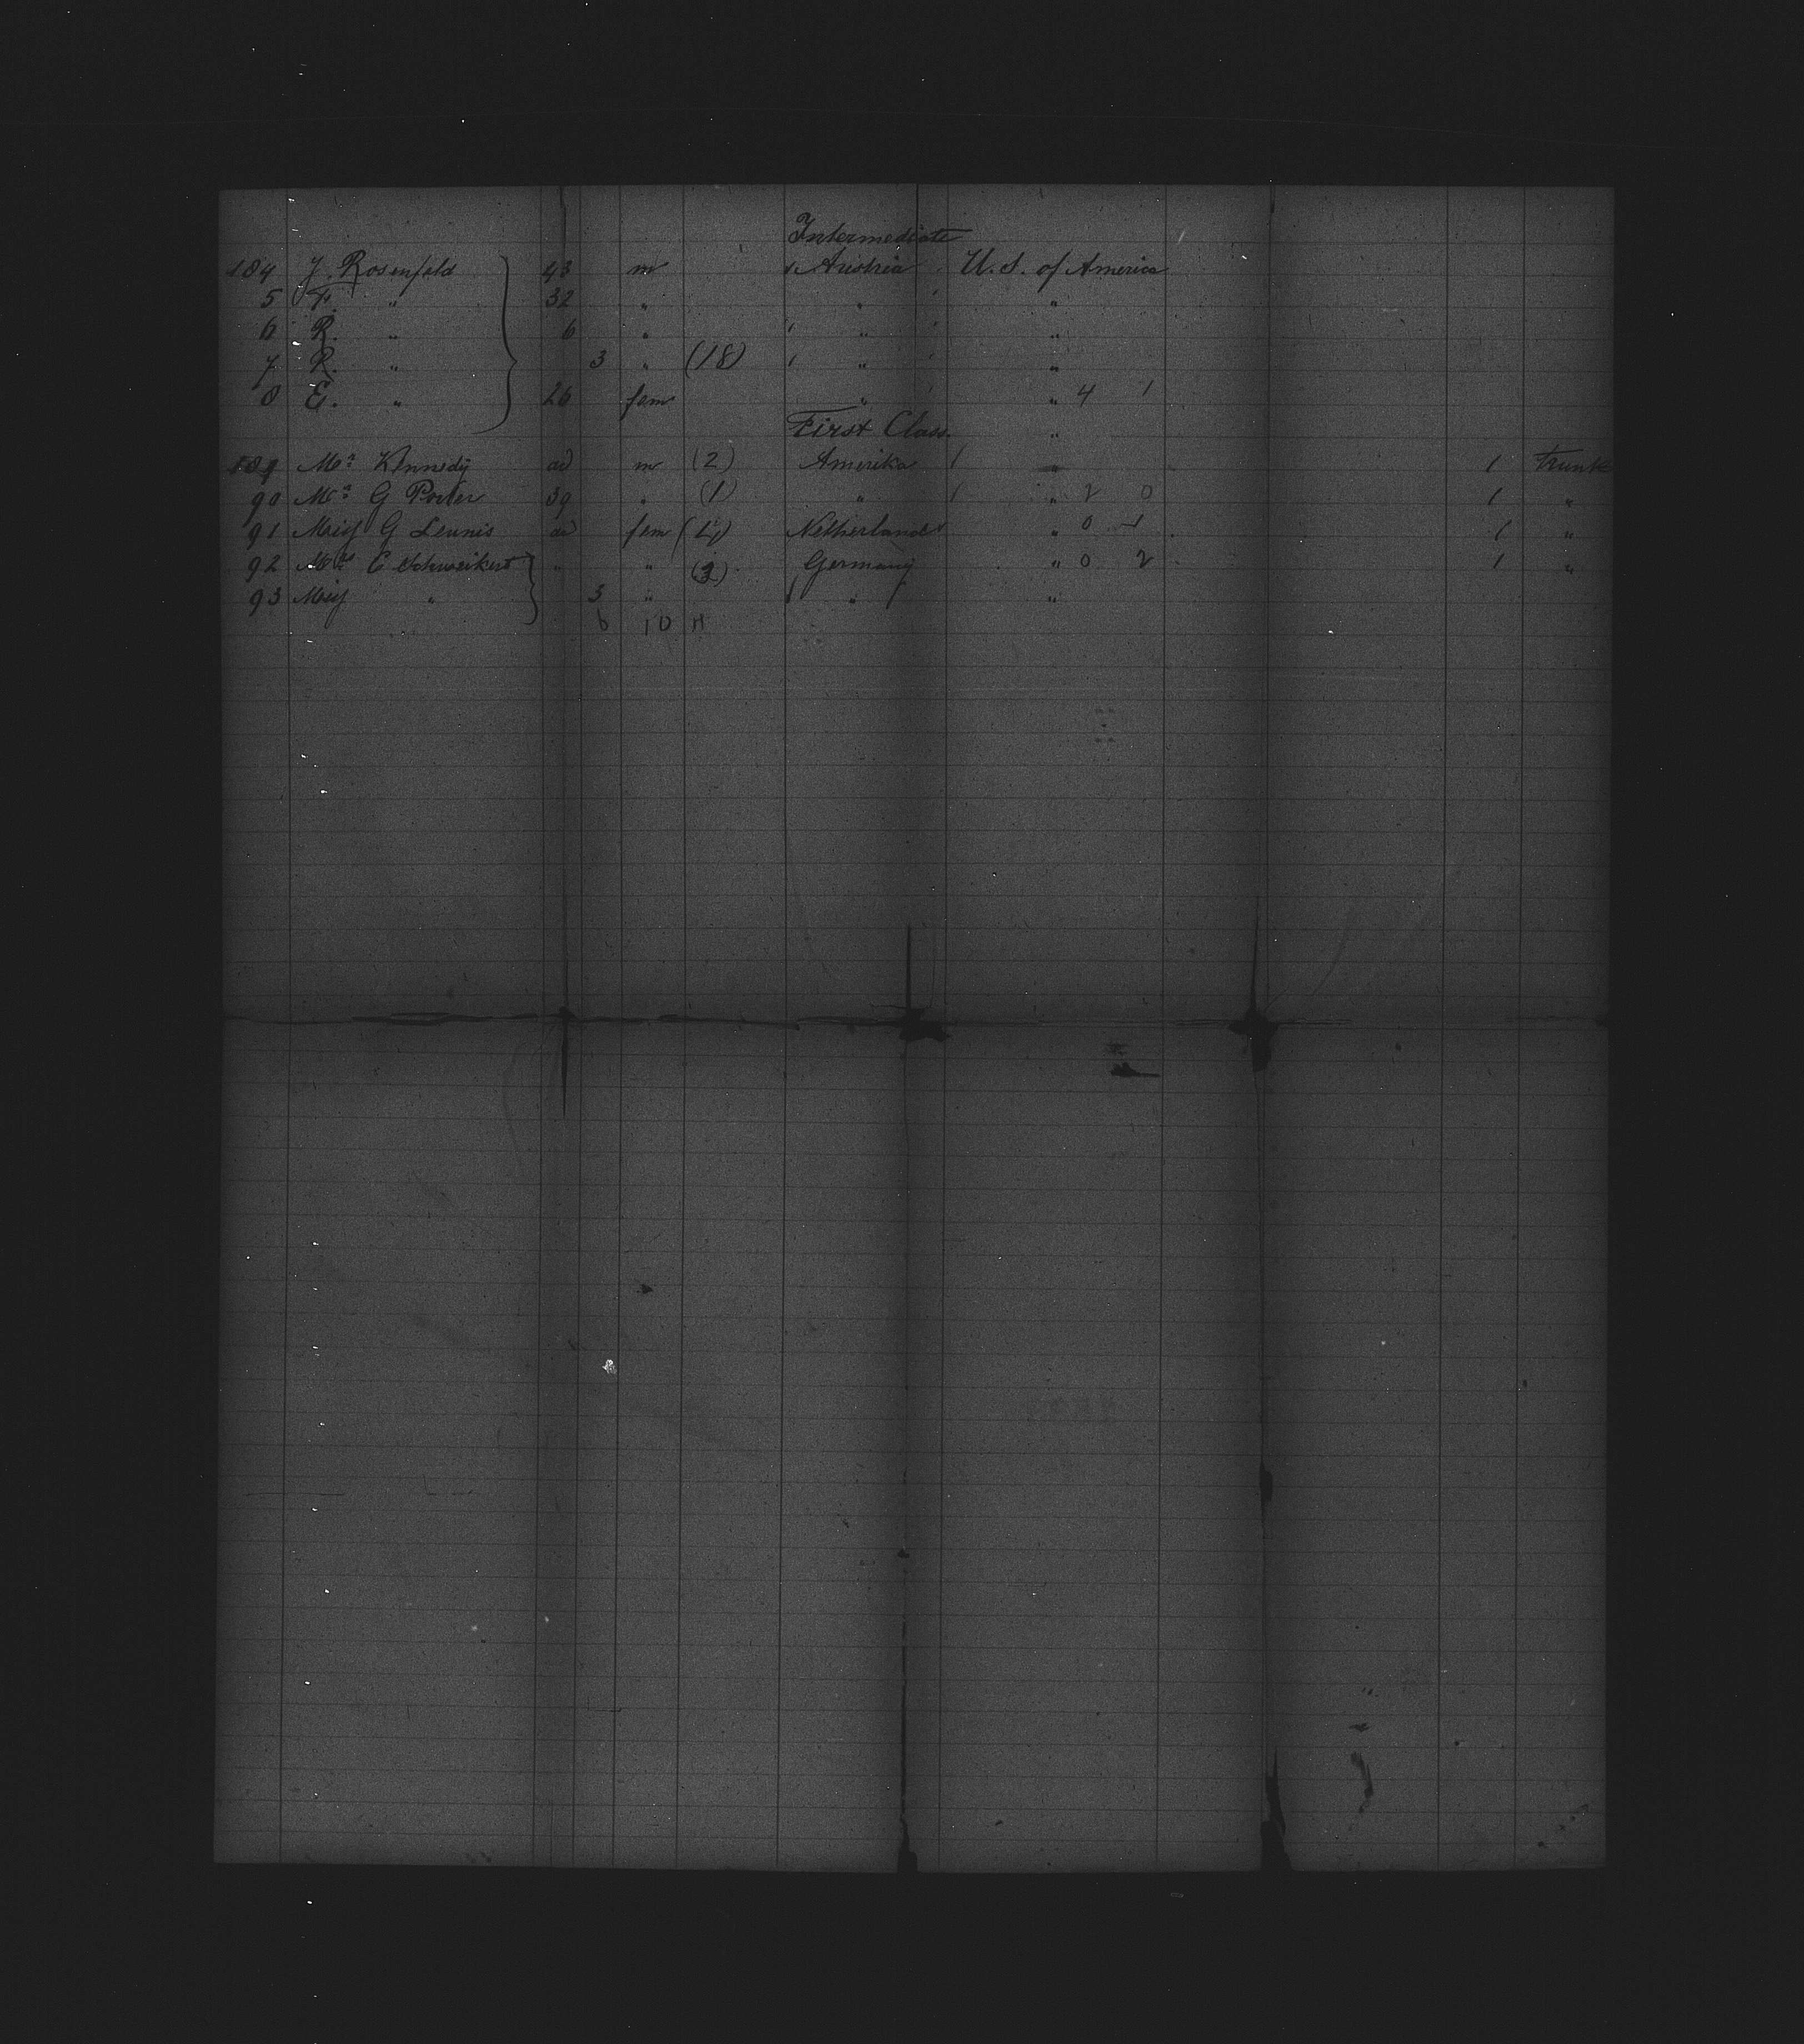 Intermediate
184 J. Rosenfeld 43 m Austria U. S. of America
5 F. " 32 " " "
6 R. " 6 " " "
7 R. " 3 " (18) " "
8 E. " 26 fem " " 4 1
First Class. "
189 Mr. Kennedy ad m (2) Amerika 1 " 1 trunk
90 Mr. G Porter 39 " (1) " 1 " 2 0 1 "
91 Meiss G Leunis ad fem Netherlands " 0 1 1 "
92 Mrs. C Schweikert " " (3) Germany " 0 2 1 "
93 Meiss " 3 " " "
6 10 11